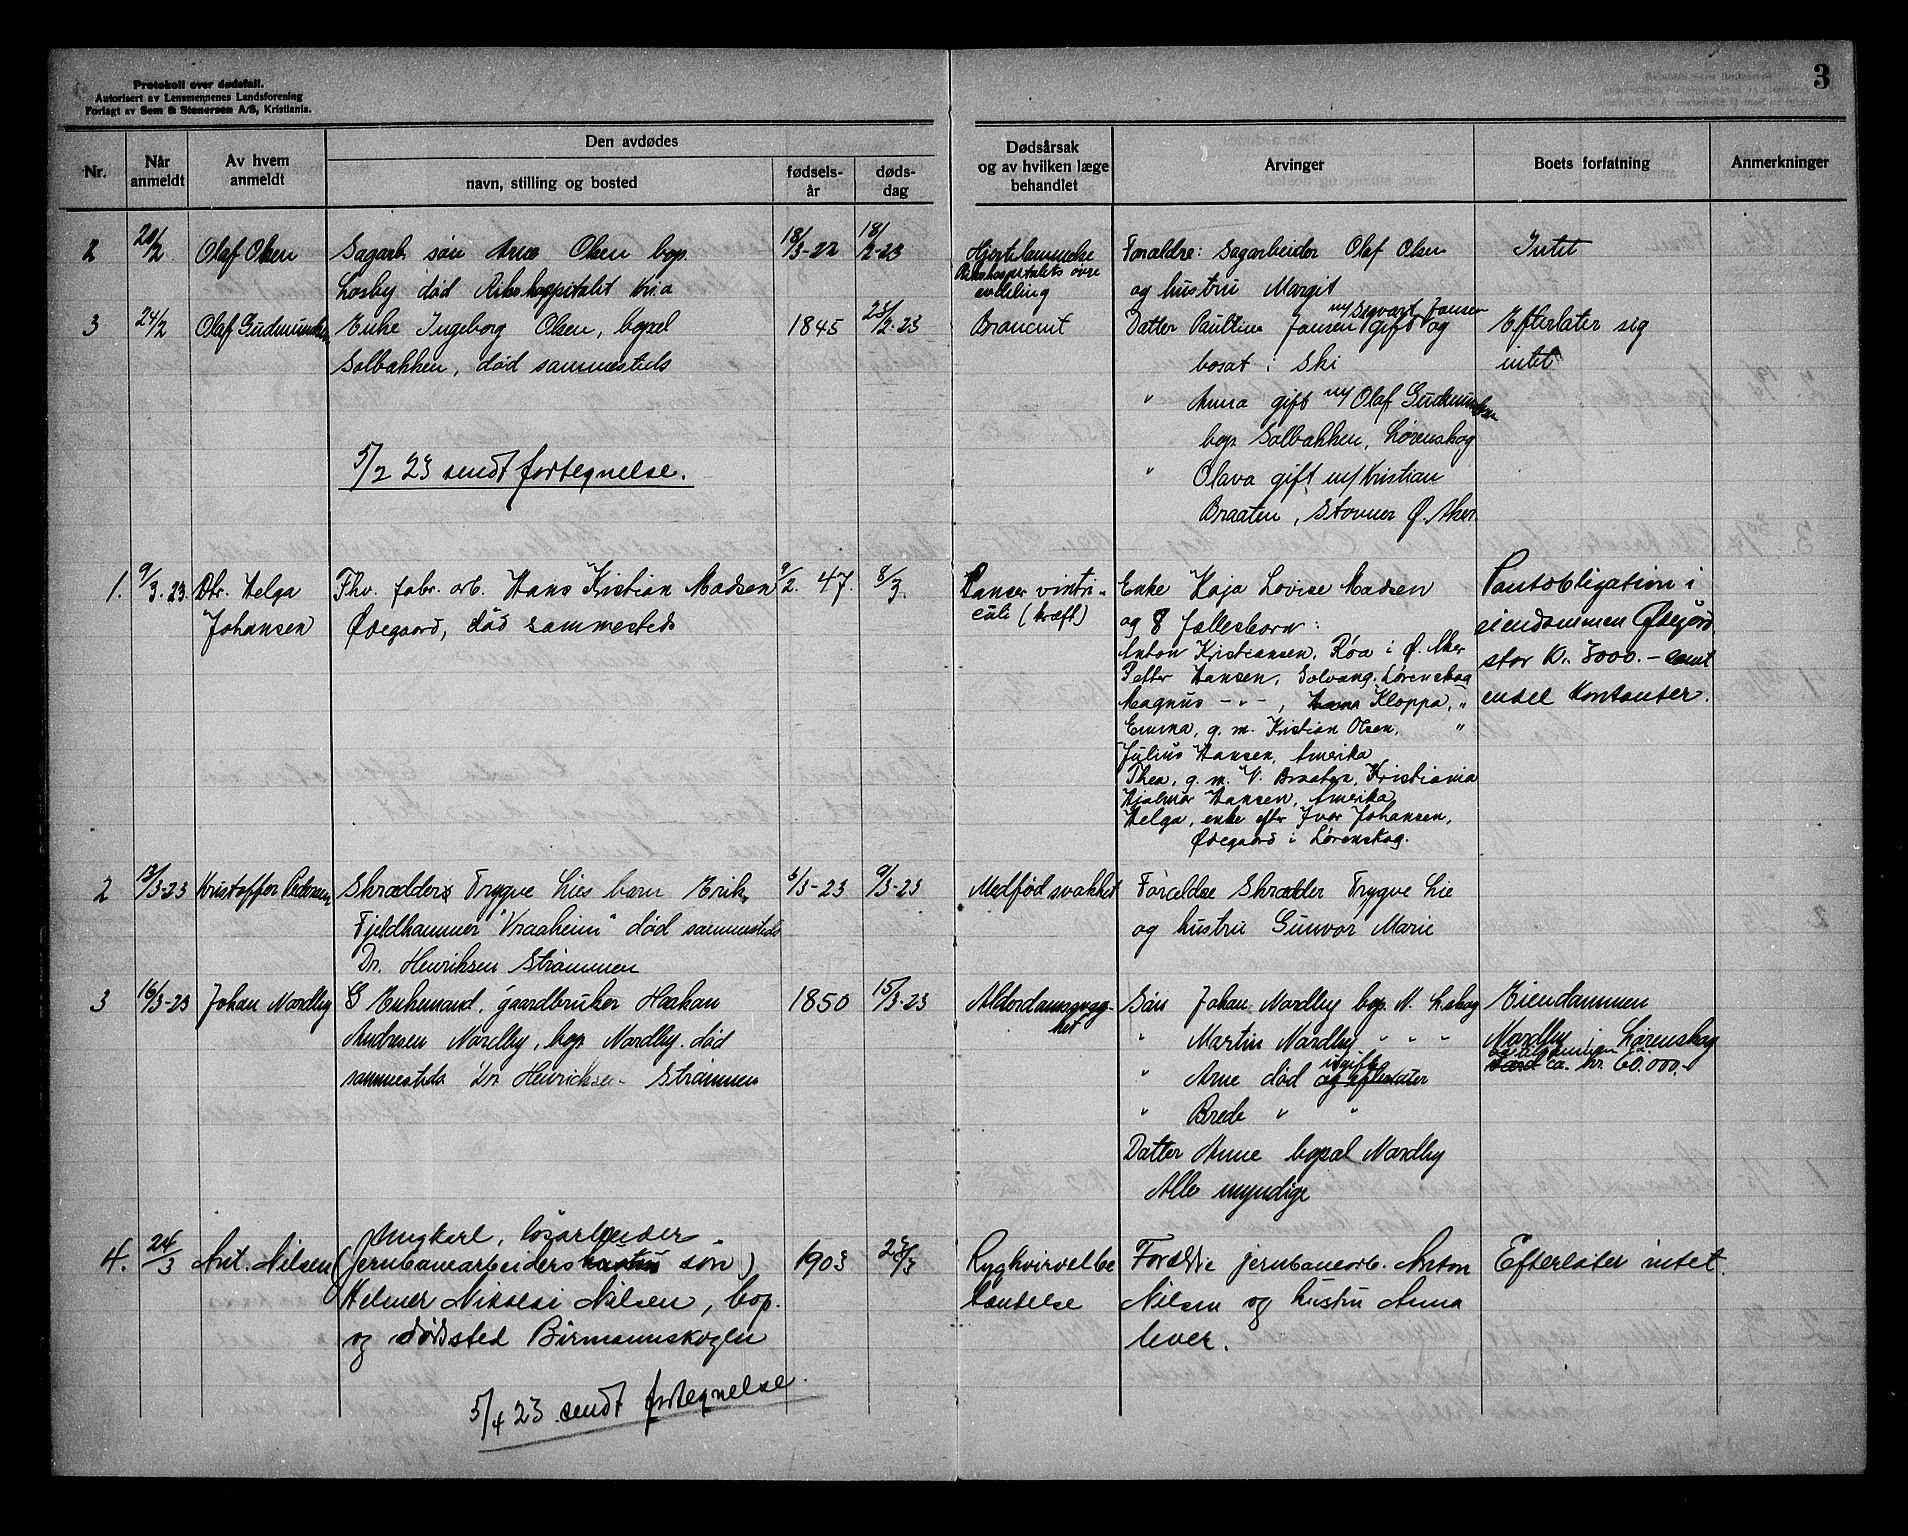 Protokoll over dødsfall.
Autorisert av Lensmennenes Landsforening
Forlagt av Sem & Stenersen A/S, Kristiania.
3
Nr.
Når anmeldt
Av hvem anmeldt
Den avdødes
navn, stilling og bosted
fødselsår
dødsdag
Dødsårsak
og av hvilken læge
behandlet
Arvinger
Boets forfatning
Anmerkninger
2 20/2 Olaf Olsen Sagarb. søn Arne Olsen bop. 18/3-22 18/2-23 Hjertelammelse Foraldre: Sagarbeider Olaf Olsen Intet
Losby død Rikshospitalet Kria Rikshospitalets øvre avdeling og hustru Margit
3 24/2 Olaf Gudmundsen Enke Ingeborg Olsen, bopal 1845 23/2-23 Broncnit Datter Pauline Jansen gift m/ Sigvart Jansen og Efterlater sig
Solbakken, død sammesteds bosat i Ski intet
" Anna gift m/ Olaf Gudmundsen
bop Solbakken, Lørenskog
5/2 23 sendt fortegnelse.
" Olava gift m/ Kristian
Braaten, Stovner Ø. Aker.
1. 9/3.23. Dtr. Helga Fhv. fabr. arb. Hans Kristian Madsen 9/2. 47. 8/3. Canser vintri- Enke Kaja Lovise Madsen Pantobligation i
Johansen Ødegaard, død sammesteds culi (kræft) og 8 fællesbørn: eiendommen Ødegård
Anton Kristiansen, Røa i Ø. Aker stor kr. 3000.- samt
Petter Hansen, Solvang, Lørenskog endel kontanter.
Magnus -"-, Kloppa, "
Emma, g. m. Kristian Olsen, "
Julius Hansen, Amerika
Thea, g. m. V. Braaten, Kristiania
Hjalmar Hansen, Amerika
Helga, enke efter Ivar Johansen,
Ødegaard i Lørenskog.
2 13/3-23 Kristoffer Pedersen Skrædder Trygve Lies barn Erik, 6/3-23 9/3-23 Medfød svakhet Foraldre Skrædder Trygve Lie
Fjeldhammer "Vraaheim" død sammesteds og hustru Gunvor Marie
Dr. Henriksen Strømmen
3 16/3-23 Johan Nordby G Enkemand, gaardbruker Haakan 1850 15/3-23 Alderdomssvag- Søn Johan Nordby bop. N. Lskog Eiendommen
Andresen Nordby, bop Nordby død het " Martin Nordby " " " Nordby i Lørenskog
sammesteds Dr Henriksen Strømmen " Arne død ugift og efterlater ca. kr. 60.000.-
" Brede " "
Datter Anne bopal Nordby
Alle myndige
4. 24/3 Ant. Nilsen Ungkarl, løsarbeider
(Jernbanearbeiders hustru søn) 1903 23/3 Ryghvirvelbe Foraldre jernbanearb. Anton Efterlater intet.
Helmer Nikolai Nilsen, bop. tændelse Nilsen og hustru Anna
og dødssted Birmannskogen lever.
5/4 23 sendt fortegnelse.